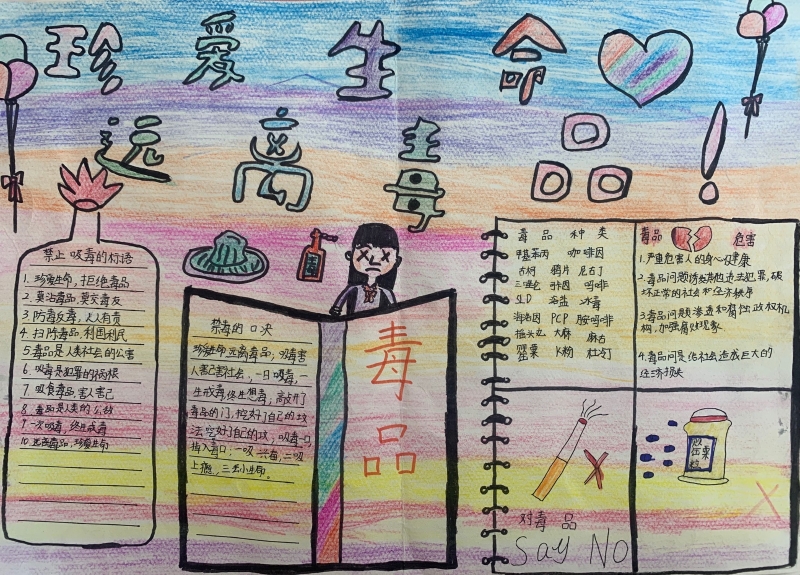 珍爱生命
远离毒品!
禁止吸毒的标语
1. 珍爱生命，拒绝毒品
2. 莫沾毒品，莫交毒友
3. 防毒反毒，人人有责
4. 扫除毒品，利国利民
5. 毒品是人类社会的公害
6. 吸毒是犯罪的祸根
7. 吸食毒品害人害己
8. 毒品是人类的公敌
9. 一次吸毒，终生戒毒
10. 远离毒品，珍爱生命
禁毒的口决
珍爱生命远离毒品，吸毒害
人害己害社会，一日吸毒，一
生戒毒，终生想毒，
毒品的门，控好了自己的
自己的，吸毒一口，
掉入毒口，一吸兴毒，二吸
上瘾，三去小生命。
毒品
毒品种类
甲基苯丙 咖啡因
古柯 鸦片 尼古丁
吗啡
LSD 浴盐 冰毒
海洛因 PCP 胺吗啡
摇头丸 大麻 麻古
罂粟 K粉 杜冷丁
毒品 危害
1. 严重危害人的身心健康
2. 毒品问题诱发其他违法犯罪，破
坏正常的社会和经济秩序
3. 毒品问题渗透和腐蚀政权机
构，加强腐败现象.
4. 毒品问题给社会造成巨大的
经济损失
对毒品
Say NO
罂粟